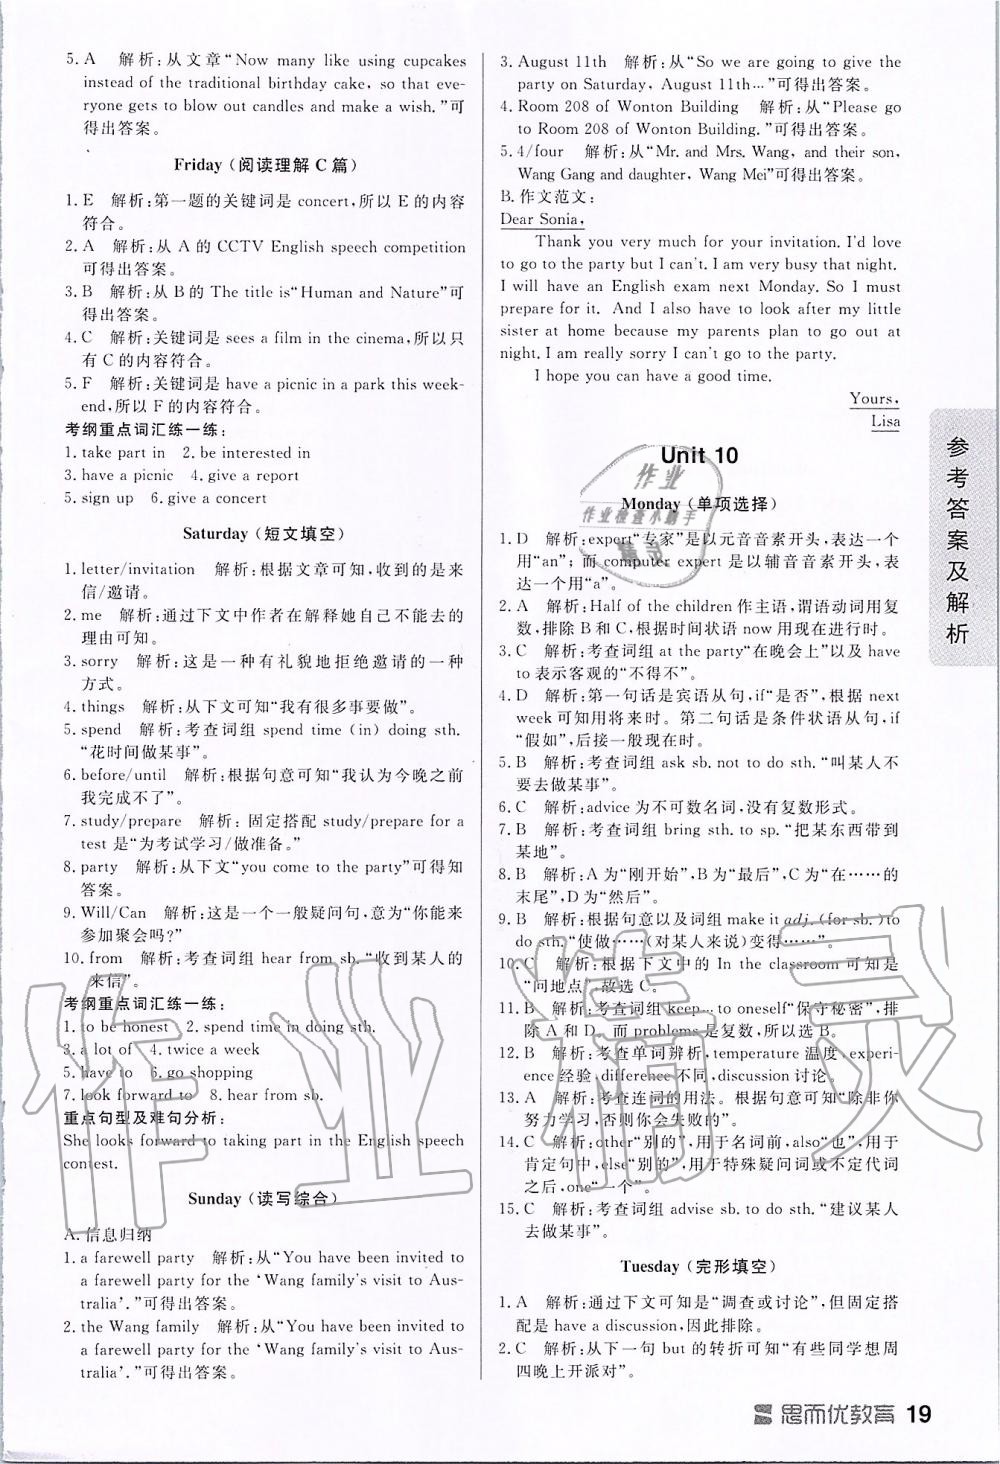 5. A 解析:从文章“Now many like using cupcakes
instead of the traditional birthday cake, so that eve-
ryone gets to blow out candles and make a wish.”可
得出答案。
Friday (阅读理解 C 篇)
1. E 解析:第一题的关键词是 concert,所以 E 的内容
符合。
2. A 解析:从 A 的 CCTV English speech competition
可得出答案。
3. B 解析:从 B 的 The title is“Human and Nature”可
得出答案。
4. C 解析:关键词是 sees a film in the cinema,所以只
有 C 的内容符合。
5. F 解析:关键词是 have a picnic in a park this week-
end,所以 F 的内容符合。
考纲重点词汇练一练:
1. take part in 2. be interested in
3. have a picnic 4. give a report
5. sign up 6. give a concert
Saturday (短文填空)
1. letter/invitation 解析:根据文章可知,收到的是来
信/邀请。
2. me 解析:通过下文中作者在解释她自己不能去的
理由可知。
3. sorry 解析:这是一种有礼貌地拒绝邀请的一种
方式。
4. things 解析:从下文可知“我有很多事要做”。
5. spend 解析:考查词组 spend time (in) doing sth.
“花时间做某事”。
6. before/until 解析:根据句意可知“我认为今晚之前
我完成不了”。
7. study/prepare 解析: 固定搭配 study/prepare for a
test 是“为考试学习/做准备。”
8. party 解析:从下文“you come to the party”可得知
答案。
9. Will/Can 解析:这是一个一般疑问句,意为“你能来
参加聚会吗?”
10. from 解析:考查词组 hear from sb. “收到某人的
来信”。
考纲重点词汇练一练:
1. to be honest 2. spend time in doing sth.
3. a lot of 4. twice a week
5. have to 6. go shopping
7. look forward to 8. hear from sb.
重点句型及难句分析:
She looks forward to taking part in the English speech
contest.
Sunday (读写综合)
A. 信息归纳
1. a farewell party 解析:从“You have been invited to
a farewell party for the ‘Wang family's visit to Aus-
tralia’. ”可得出答案。
2. the Wang family 解析:从“You have been invited to
a farewell party for the ‘Wang family's visit to Aus-
tralia’. ”可得出答案。
3. August 11th 解析:从“So we are going to give the
party on Saturday, August 11th…”可得出答案。
4. Room 208 of Wonton Building 解析:从“Please go
to Room 208 of Wonton Building. ”可得出答案。
5. 4/four 解析:从“Mr. and Mrs. Wang, and their son,
Wang Gang and daughter, Wang Mei”可得出答案。
B. 作文范文:
Dear Sonia,
Thank you very much for your invitation. I'd love
to go to the party but I can't. I am very busy that night.
I will have an English exam next Monday. So I must
prepare for it. And I also have to look after my little
sister at home because my parents plan to go out at
night. I am really sorry I can't go to the party.
I hope you can have a good time.
Yours,
Lisa
Unit 10
Monday (单项选择)
1. D 解析:expert“专家”是以元音音素开头,表达一个
用“an”; 而 computer expert 是以辅音音素开头,表
达一个用“a”。
2. A 解析:Half of the children 作主语,谓语动词用复
数,排除 B 和 C,根据时间状语 now 用现在进行时。
3. C 解析:考查词组 at the party“在晚会上”以及 have
to 表示客观的“不得不”。
4. D 解析:第一句话是宾语从句,if“是否”,根据 next
week 可知用将来时。第二句话是条件状语从句,if
“假如”,后接一般现在时。
5. B 解析:考查词组 ask sb. not to do sth. “叫某人不
要去做某事”。
6. C 解析:advice 为不可数名词,没有复数形式。
7. B 解析:考查词组 bring sth. to sp. “把某东西带到
某地”。
8. B 解析:A 为“刚开始”,B 为“最后”,C 为“在……的
末尾”,D 为“然后”。
9. B 解析:根据句意以及词组 make it adj. (for sb. )to
do sth. “使做……(对某人来说)变得……”。
10. C 解析:根据下文中的 In the classroom 可知是
“问地点”,故选 C。
11. B 解析:考查词组 keep… to oneself“保守秘密”,排
除 A 和 D。而 problems 是复数,所以选 B。
12. B 解析:考查单词辨析,temperature 温度, experi-
ence 经验,difference 不同,discussion 讨论。
13. A 解析:考查连词的用法。根据句意可知“除非你
努力学习,否则你会失败的”。
14. C 解析:other“别的”,用于名词前,also“也”,用于
肯定句中,else“别的”,用于特殊疑问词或不定代词
之后,one“一个”。
15. C 解析:考查词组 advise sb. to do sth. “建议某人
去做某事”。
Tuesday (完形填空)
1. A 解析:通过下文可知是“调查或讨论”,但固定搭
配是 have a discussion,因此排除。
2. C 解析:从下一句 but 的转折可知“有些同学想周
四晚上开派对”。
参考答案及解析
作业
作业检查小助手
精灵
作业精灵
思而优教育 19